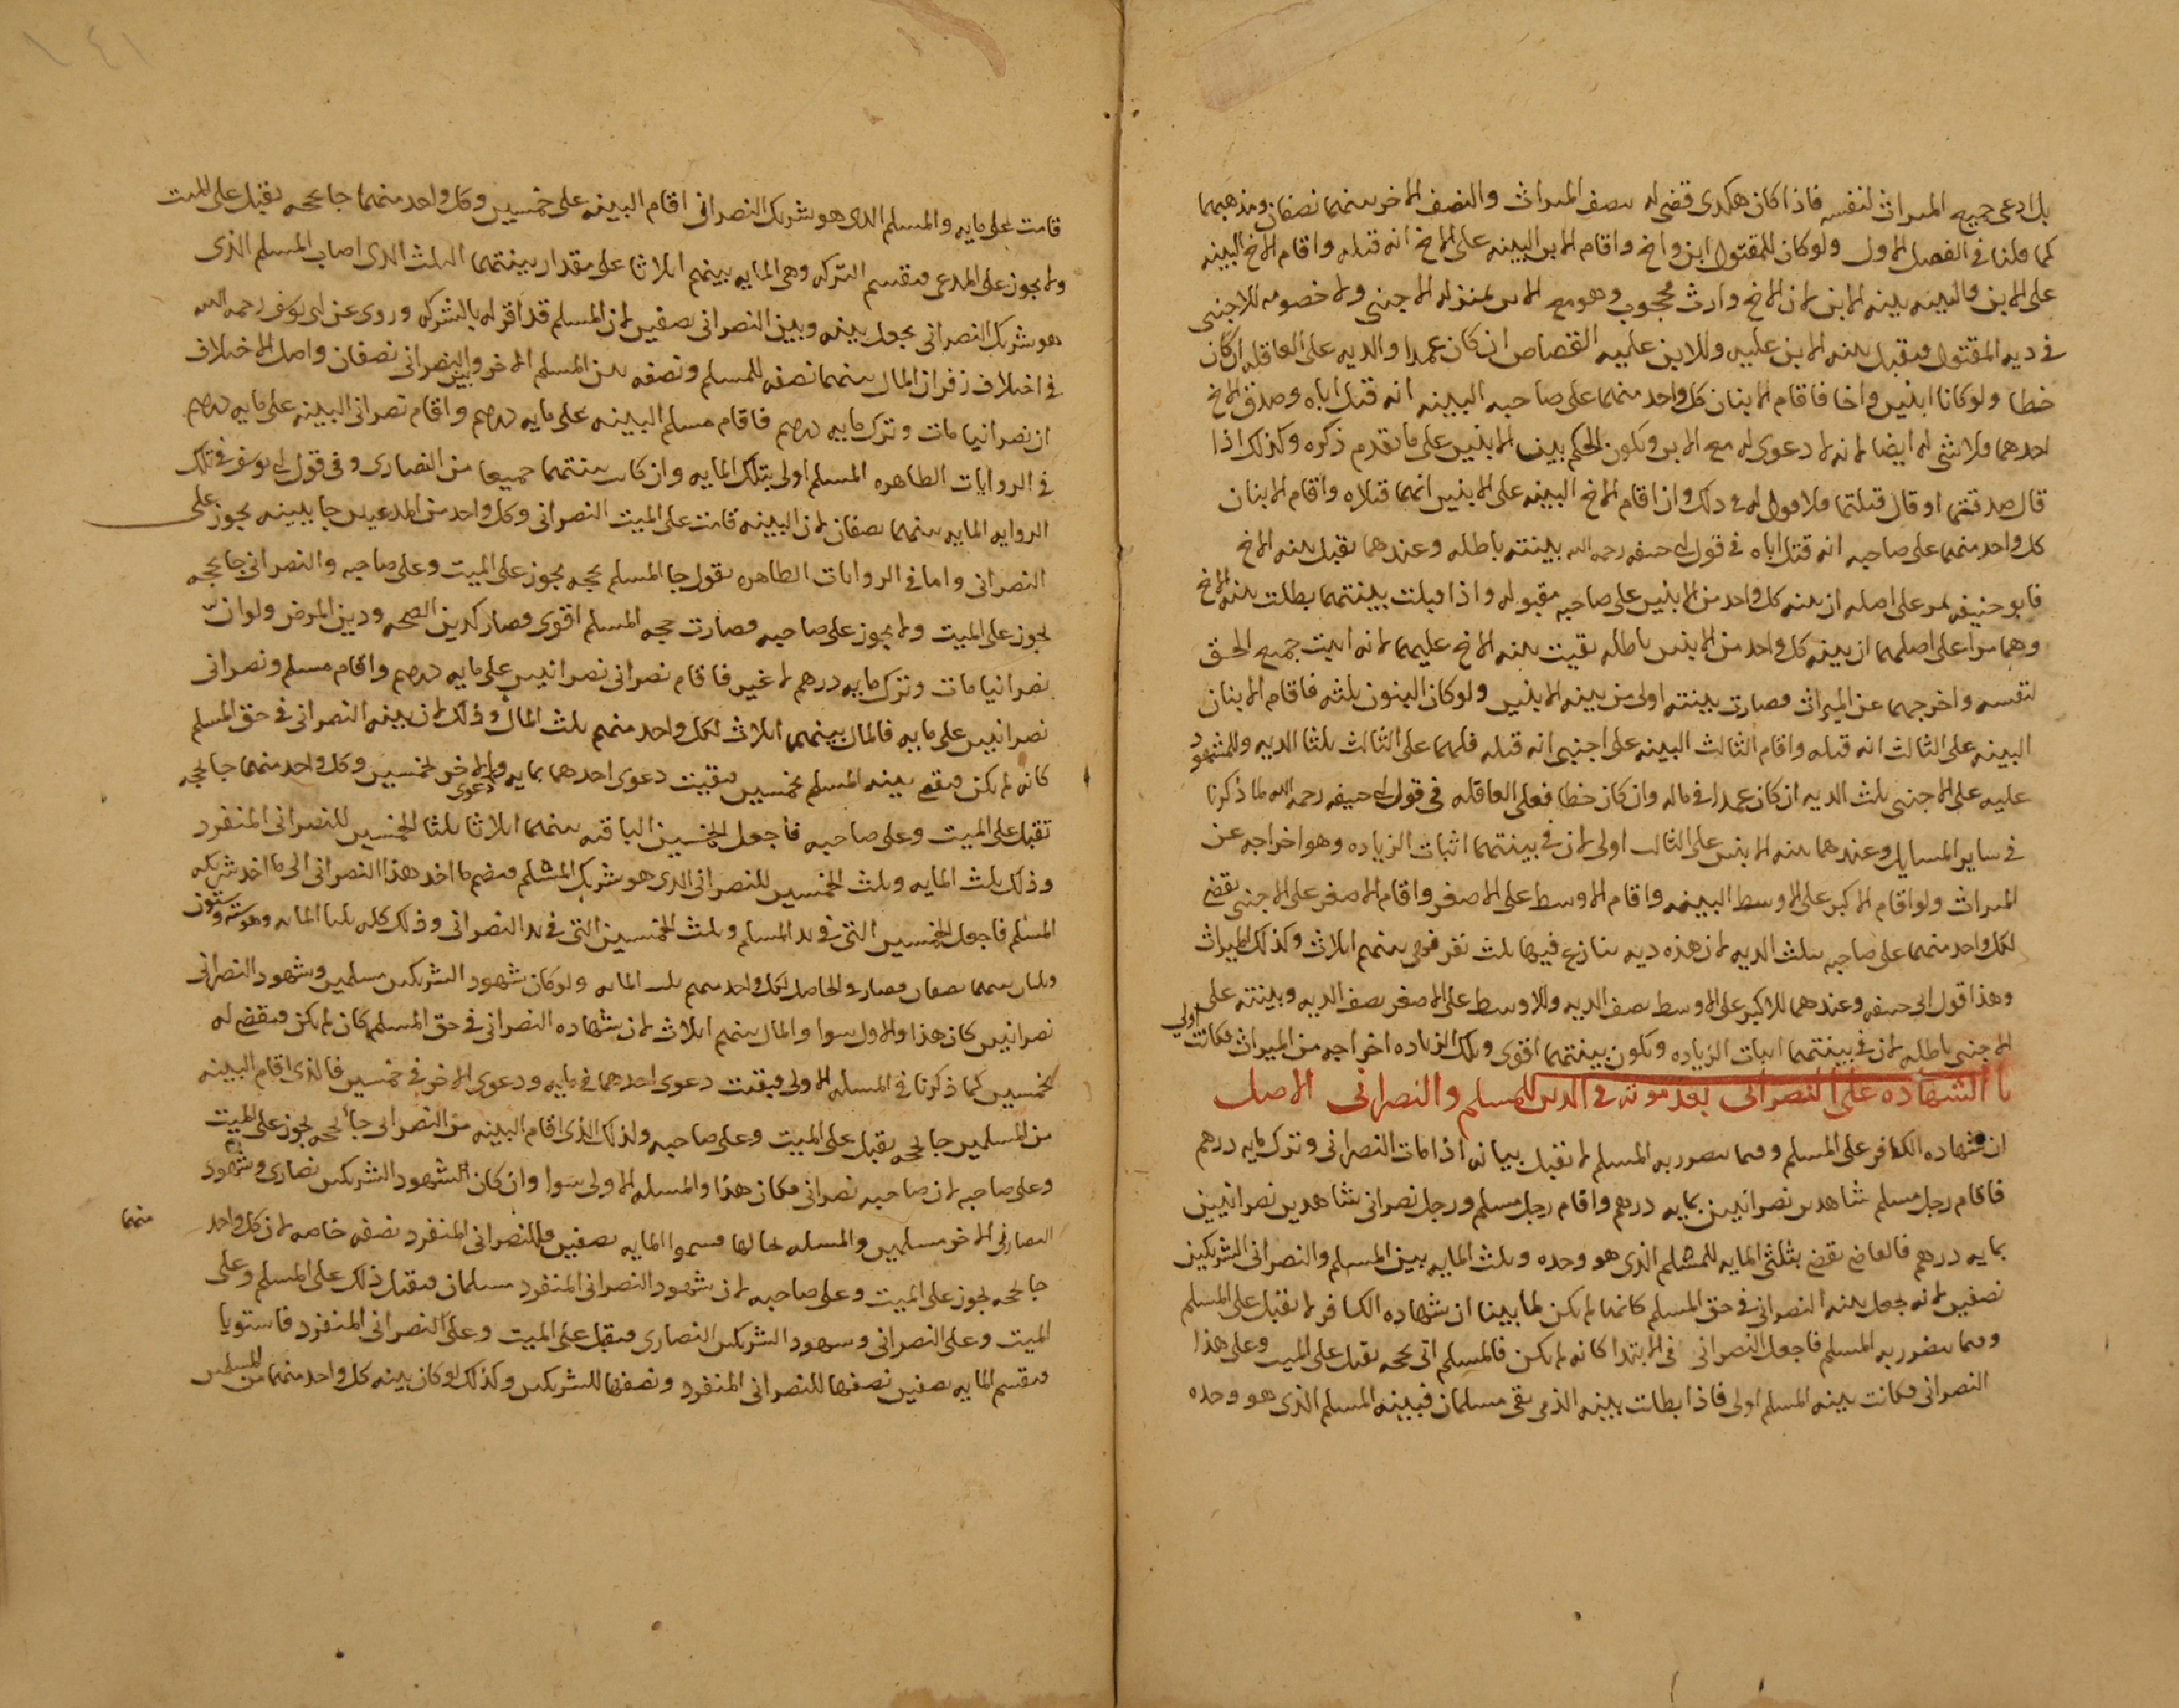 بل ادعى جميع الميراث لنفسه فاذا كان هكذى قضى له بنصف الميراث والنصف الاخر بينهما نصفان ومذهبهما
كما قلنا في الفصل الاول ولو كان للمقتول ابن واخ واقام الابن البينه على الاخ انه قتله واقام الاخ البينه
على الابن فالبينه بينه الابن لان الاخ وارث محجوب وهو مع الابن بمنزله الاجنبى ولا خصومه للاجنبى
في ديه المقتول فيقبل بينه الابن عليه وللابن عليه القصاص ان كان عمدا والديه على العاقله ان كان
خطا ولو كانا ابنين واخا فاقام الابنان كل واحد منهما على صاحبه البينه انه قتل اباه وصدق الاخ
احدهما فلا شى له ايضا لانه لا دعوى له مع الابن ويكون الحكم بين الابنين على ما تقدم ذكره وكذلك اذا
قال صدقتما او قال قتلتما فلا قول له فى ذلك وان اقام الاخ البينه على الابنين انهما قتلاه واقام الابنان
كل واحد منهما على صاحبه انه قتل اباه في قول ابى حنيفه رحمه الله بينته باطله وعندهما يقبل بينه الاخ
فابو حنيفه مر على اصله ان بينه كل واحد من الابنين على صاحبه مقبوله واذا قبلت بينتهما بطلت بينه الاخ
وهما مرا على اصلهما ان بينه كل واحد من الابنين باطله بقيت بينه الاخ عليهما لانه اثبت جميع الحق
لنفسه واخرجهما عن الميراث فصارت بينته اولى من بينه الابنين ولو كان البنون ثلثه فاقام الابنان
البينه على الثالث انه قتله واقام الثالث البينه على اجنبى انه قتله فلهما على الثالث ثلثا الديه وللمشهود
عليه على الاجنبى ثلث الديه ان كان عمدا فى ماله وان كان خطا فعلى العاقله في قول ابى حنيفه رحمه الله لما ذكرنا
في ساير المسايل وعندهما بينه الابنين على الثالث اولى لان في بينتهما اثبات الزياده وهو اخراجه عن
الميراث ولو اقام الاكبر على الاوسط البينه واقام الاوسط على الاصغر واقام الاصغر على الاجنبى يقضى
لكل واحد منهما على صاحبه بثلث الديه لان هذه ديه تنازع فيها ثلث نفر فهى بينهم اثلاث وكذلك الميراث
وهذا قول ابى حنيفه وعندهما للاكبر على الاوسط نصف الديه وللاوسط على الاصغر نصف الديه وبينته على
الاجنبى باطله لان في بينتهما اثبات الزياده وتكون بينتهما اقوى وتلك الزياده اخراجه من الميراث فكانت اولى
باب الشهاده على النصرانى بعد موته في الدين للمسلم والنصرانى الاصل
ان شهاده الكافر على المسلم وفيما يتضرر به المسلم لا تقبل بيانه اذا مات النصرانى وترك مايه درهم
فاقام رجل مسلم شاهدين نصرانيين بمايه درهم واقام رجل مسلم ورجل نصرانى شاهدين نصرانيين
بمايه درهم فالقاضى يقضى بثلثى المايه للمسلم الذى هو وحده وثلث المايه بين المسلم والنصرانى الشريكين
نصفين لانه يجعل بينه النصرانى في حق المسلم كانها لم يكن لما بينا ان شهاده الكافر لا يقبل على المسلم
وفيما يتضرر به المسلم فاجعل النصرانى في الابتدا كانه لم يكن فالمسلم اتى بحجه يقبل على الميت وعلى هذا
النصرانى فكانت بينه المسلم اولى فاذا بطلت بينه الذمى بقى مسلمان فبينه المسلم الذى هو وحده
قامت على مايه والمسلم الذى هو شريك النصرانى اقام البينه على خمسين وكل واحد منهما جا بحجه يقبل على الميت
ولا يجوز على المدعى فيقسم التركه وهى المايه بينهم اثلاثا على مقدار بينتهما الثلث الذى اصاب المسلم الذى
هو شريك النصرانى يجعل بينه وبين النصرانى نصفين لان المسلم قد اقر له بالشركه وروى عن ابى يوسف رحمه الله
في اختلاف زفر ان المال بينهما نصفه للمسلم ونصفه بين المسلم الاخر وبين النصرانى نصفان واصل الاختلاف
ان نصرانيا مات وترك مايه درهم فاقام مسلم البينه على مايه درهم واقام نصرانى البينه على مايه درهم
في الروايات الظاهره المسلم اولى بتلك المايه وان كانت بينتهما جميعا من النصارى وفي قول ابى يوسف في تلك
الروايه المايه بينهما نصفان لان البينه قامت على الميت النصرانى وكل واحد من المدعيين جا ببينه يجوز على
النصرانى واما في الروايات الظاهره يقول جا المسلم بحجه يجوز على الميت وعلى صاحبه والنصرانى جا بحجه
يجوز على الميت ولا يجوز على صاحبه فصارت حجه المسلم اقوى فصار كدين الصحه ودين المرض ولو ان
نصرانيا مات وترك مايه درهم لا غير فاقام نصرانى نصرانيين على مايه درهم واقام مسلم ونصرانى
نصرانيين على مايه فالمال بينهما اثلاث لكل واحد منهم ثلث المال وذلك لان بينه النصرانى في حق المسلم
كانه لم يكن فيقع بينه المسلم بخمسين فبقيت دعوى احدهما بمايه ودعوى الاخر لخمسين وكل واحد منهما جا بحجه
تقبل على الميت وعلى صاحبه فاجعل الخمسين الباقيه بينهما اثلاثا ثلثا الخمسين للنصرانى المنفرد
وذلك ثلث المايه وثلث الخمسين للنصرانى الذى هو شريك المسلم فيضم ما اخذ هذا النصرانى الى ما اخذ شريكه
المسلم فاجعل الخمسين التى في يد المسلم وثلث الخمسين التى في يد النصرانى وذلك كله ثلثا المايه وهو سته وستون
وثلثان بينهما نصفان فصار في الحاصل لكل واحد منهم ثلث المايه ولو كان شهود الشريكين مسلمين وشهود النصرانى
نصرانيين كان هذا والاول سوا والمال بينهم اثلاث لان شهاده النصرانى في حق المسلم كان لم يكن فيقضى له
بخمسين كما ذكرنا في المسله الاولى فبقيت دعوى احدهما في مايه ودعوى الاخر في خمسين فالذى اقام البينه
من المسلمين جا بحجه يقبل على الميت وعلى صاحبه ولذلك الذى اقام البينه من النصرانى جا بحجه يجوز على الميت
وعلى صاحبه لان صاحبه نصرانى فكان هذا والمسله الاولى سوا وان كان الشهود الشريكين نصارى وشهود
النصارى الاخر مسلمين والمسله بحالها قسموا المايه نصفين وللنصرانى المنفرد نصفه خاصه لان كل واحد منهما
جا بحجه يجوز على الميت وعلى صاحبه لان شهود النصرانى المنفرد مسلمان فيقبل ذلك على المسلم وعلى
الميت وعلى النصرانى وشهود الشريكين النصارى فيقبل على الميت وعلى النصرانى المنفرد فاستويا
فيقسم المايه نصفين نصفها للنصرانى المنفرد ونصفها للشريكين وكذلك لو كان بينه كل واحد منهما من المسلمين